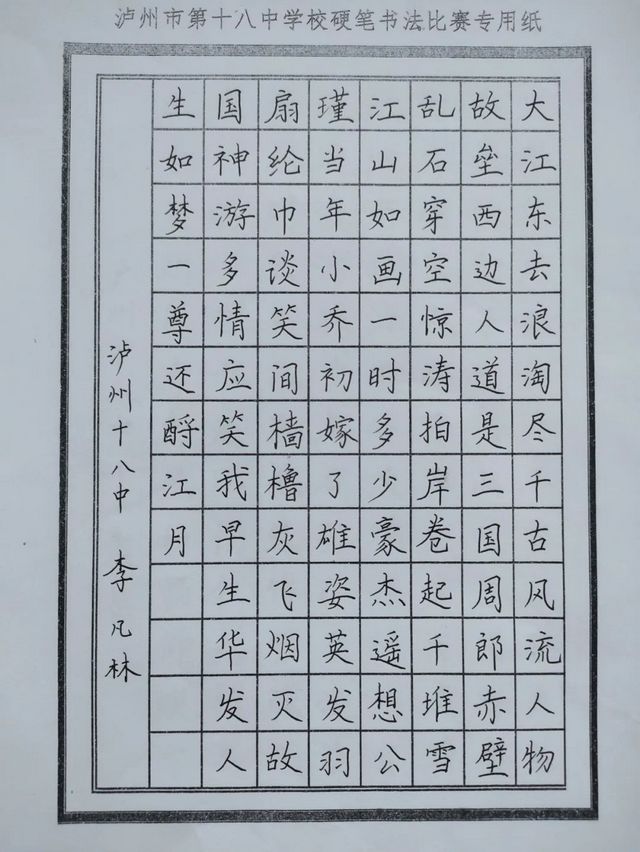 泸州市第十八中学校硬笔书法比赛专用纸
大江东去浪淘尽千古风流人物
故垒西边人道是三国周郎赤壁
乱石穿空惊涛拍岸卷起千堆雪
江山如画一时多少豪杰遥想公
瑾当年小乔初嫁了雄姿英发羽
扇纶巾谈笑间樯橹灰飞烟灭故
国神游多情应笑我早生华发人
生如梦一尊还酹江月
泸州十八中 李凡林